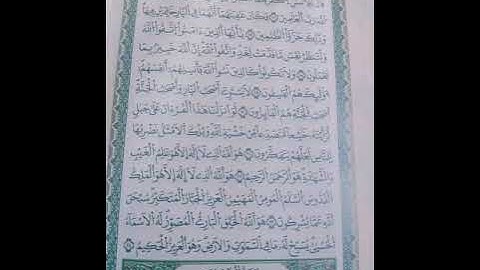 اللَّهَ رَبَّ الْعَٰلَمِينَ فَكَانَ عَٰقِبَتَهُمَا أَنَّهُمَا فِي النَّارِ خَٰلِدَيْنِ فِيهَا
وَذَٰلِكَ جَزَٰٓؤُا الظَّٰلِمِينَ يَٰٓأَيُّهَا الَّذِينَ ءَامَنُوا اتَّقُوا اللَّهَ
وَلْتَنظُرْ نَفْسٌ مَّا قَدَّمَتْ لِغَدٍ وَاتَّقُوا اللَّهَ إِنَّ اللَّهَ خَبِيرٌ بِمَا
تَعْمَلُونَ وَلَا تَكُونُوا كَالَّذِينَ نَسُوا اللَّهَ فَأَنسَىٰهُمْ أَنفُسَهُمْ
أُولَٰٓئِكَ هُمُ الْفَٰسِقُونَ لَا يَسْتَوِي أَصْحَٰبُ النَّارِ وَأَصْحَٰبُ الْجَنَّةِ
أَصْحَٰبُ الْجَنَّةِ هُمُ الْفَآئِزُونَ لَوْ أَنزَلْنَا هَٰذَا الْقُرْءَانَ عَلَىٰ جَبَلٍ
لَّرَأَيْتَهُ خَٰشِعًا مُّتَصَدِّعًا مِّنْ خَشْيَةِ اللَّهِ وَتِلْكَ الْأَمْثَٰلُ نَضْرِبُهَا
لِلنَّاسِ لَعَلَّهُمْ يَتَفَكَّرُونَ هُوَ اللَّهُ الَّذِي لَا إِلَٰهَ إِلَّا هُوَ عَٰلِمُ الْغَيْبِ
وَالشَّهَٰدَةِ هُوَ الرَّحْمَٰنُ الرَّحِيمُ هُوَ اللَّهُ الَّذِي لَا إِلَٰهَ إِلَّا هُوَ الْمَلِكُ
الْقُدُّوسُ السَّلَٰمُ الْمُؤْمِنُ الْمُهَيْمِنُ الْعَزِيزُ الْجَبَّارُ الْمُتَكَبِّرُ سُبْحَٰنَ
اللَّهِ عَمَّا يُشْرِكُونَ هُوَ اللَّهُ الْخَٰلِقُ الْبَارِئُ الْمُصَوِّرُ لَهُ الْأَسْمَآءُ
الْحُسْنَىٰ يُسَبِّحُ لَهُ مَا فِي السَّمَٰوَٰتِ وَالْأَرْضِ وَهُوَ الْعَزِيزُ الْحَكِيمُ